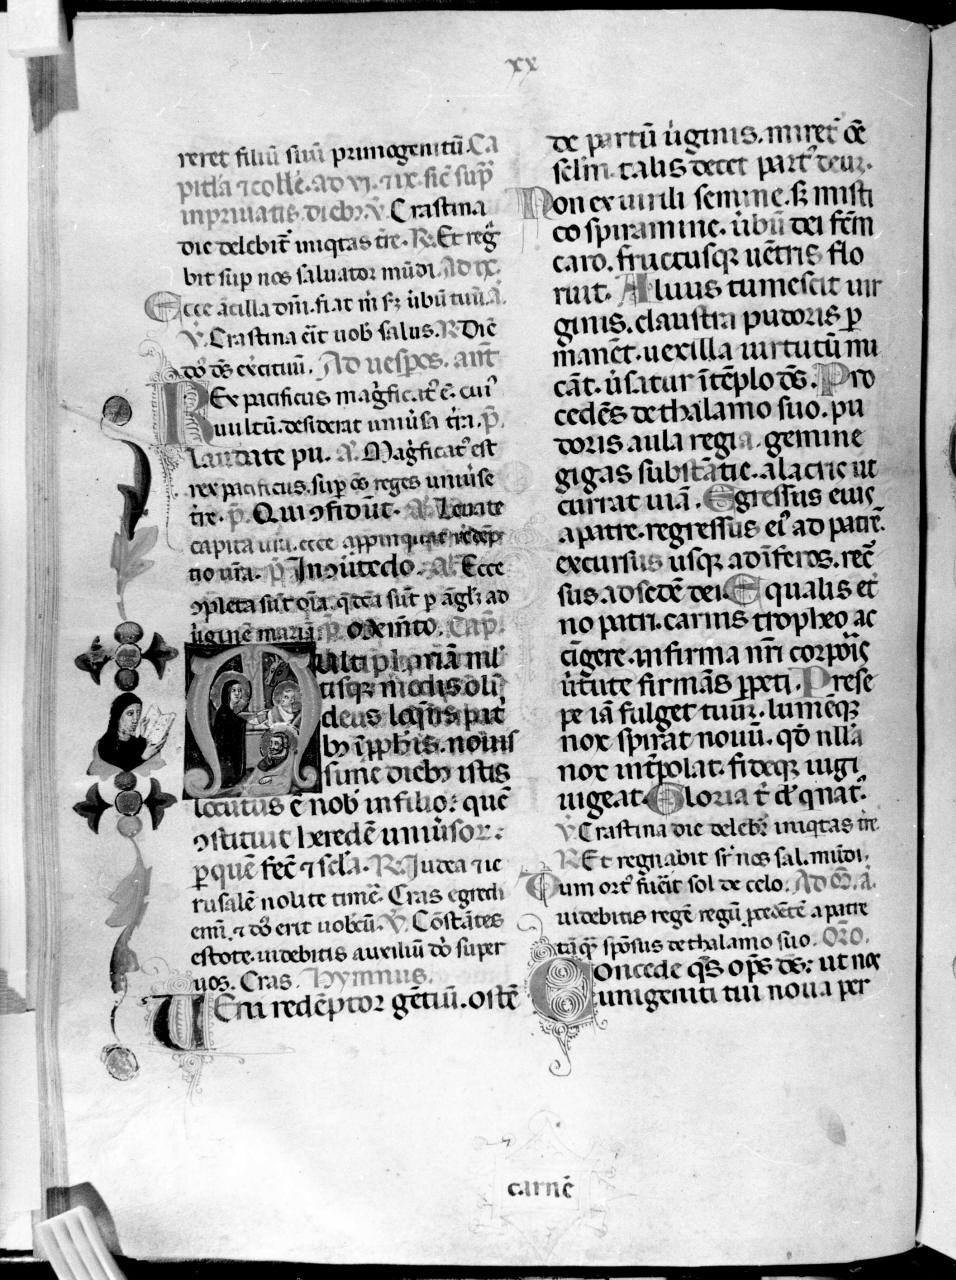 xx
reret filiū suū primogenitū. Ca
pitl'a ⁊ colle. ad vi. ⁊ ix. sic̄ sup̄
in privatis dieb; ℣ Crastina
die delebit̄ iniq̄tas tr̄e. ℟. Et reḡ
bit sup nos saluator mūdi. Ad ix.
Ecce ācilla dn̄i. fiat m̄ fꝫ ūbū tuū. a.
℣. Crastina eīt uob̄ salus. ℟ Dic̄
do' ds̄ ex̄cituū. Ad uesp̄os. ant̄
REx pacificus mag̓ficat' ē. cui'
uultū desiderat uniūsa t̄ra. p̄.
laudate pu. a. Mag̓ficat' est
rex pacificus. sup oēs reges uniūse
t̄re. p̄. Qui ↄfidūt. a. Leuate
capita ur̄a. ecce app̄inquat redēp
tio ur̄a. p̄ In ↄūtēdo. a. Ecce
ↄpleta sūt oīa. q̄ dc̄a sūt p āgl̄ꝫ ad
ūginē mariā. p̄. Memēto. Cap̄.
MUlti phariā ml'
tisqꝫ modis oli
deus loq̄ns pat̄
bꝫ ī pph̄is. nouis
sime diebꝫ istis
locutus ē nob̄ in filio: quē
ↄstituit heredē uniūsoꝝ:
p quē fec̄ ⁊ sc̄la. ℟. Iudea ⁊ ie
rusalē nolite timē. Cras egredi
emī. ⁊ do' erit uobcū. ℣. Cōstātes
estote. uidebitis auxiliū do' super
uos. Cras. Hymnus.
UEni redēptor gētiū. ostē
de partū ūginis. miret̄ oē
sclm̄. talis decet part' deuꝫ.
Non ex uirili semine. sꝫ misti
co spiramine. ūbū dei fc̄m
caro. fructusqꝫ uētris flo
ruit. Aluus tumescit uir
ginis. claustra pudoris p
manēt. uexilla uirtutū mi
cāt. ūsatur ī tēplo ds̄. Pro
cedēs de thalamo suo. pu
doris aula regia. gemine
gigas substātie. alacris ut
currat uiā. Egressus eius
a patre. regressus ei' ad patrē.
excursus usqꝫ ad īferos. rec̄
sus ad sedē dei. Equalis et
no patri. carnis tropheo ac
cīgere. infirma nr̄i corpoīs
ūtute firmās ppeti. Prese
pe iā fulget tuuꝫ. lumēqꝫ
nox spirat nouū. qd̄ nulla
nox int̄polat. fideqꝫ iugi
iugeat. Gloria t̄ dn̄e qnat'.
℣. Crastina die delebꝫ iniq̄tas tr̄e
℟ Et regnabit sr̄ nos sal. mūdi.
Cum ort' fūeit sol de celo. Ad m̄. a.
uidebitis regē regū pcedētē a patre
tāqꝫ spōsus de thalamo suo. Or̄o.
Concede qs̄ op̄s ds̄: ut nos
unigeniti tui noua per
carnē